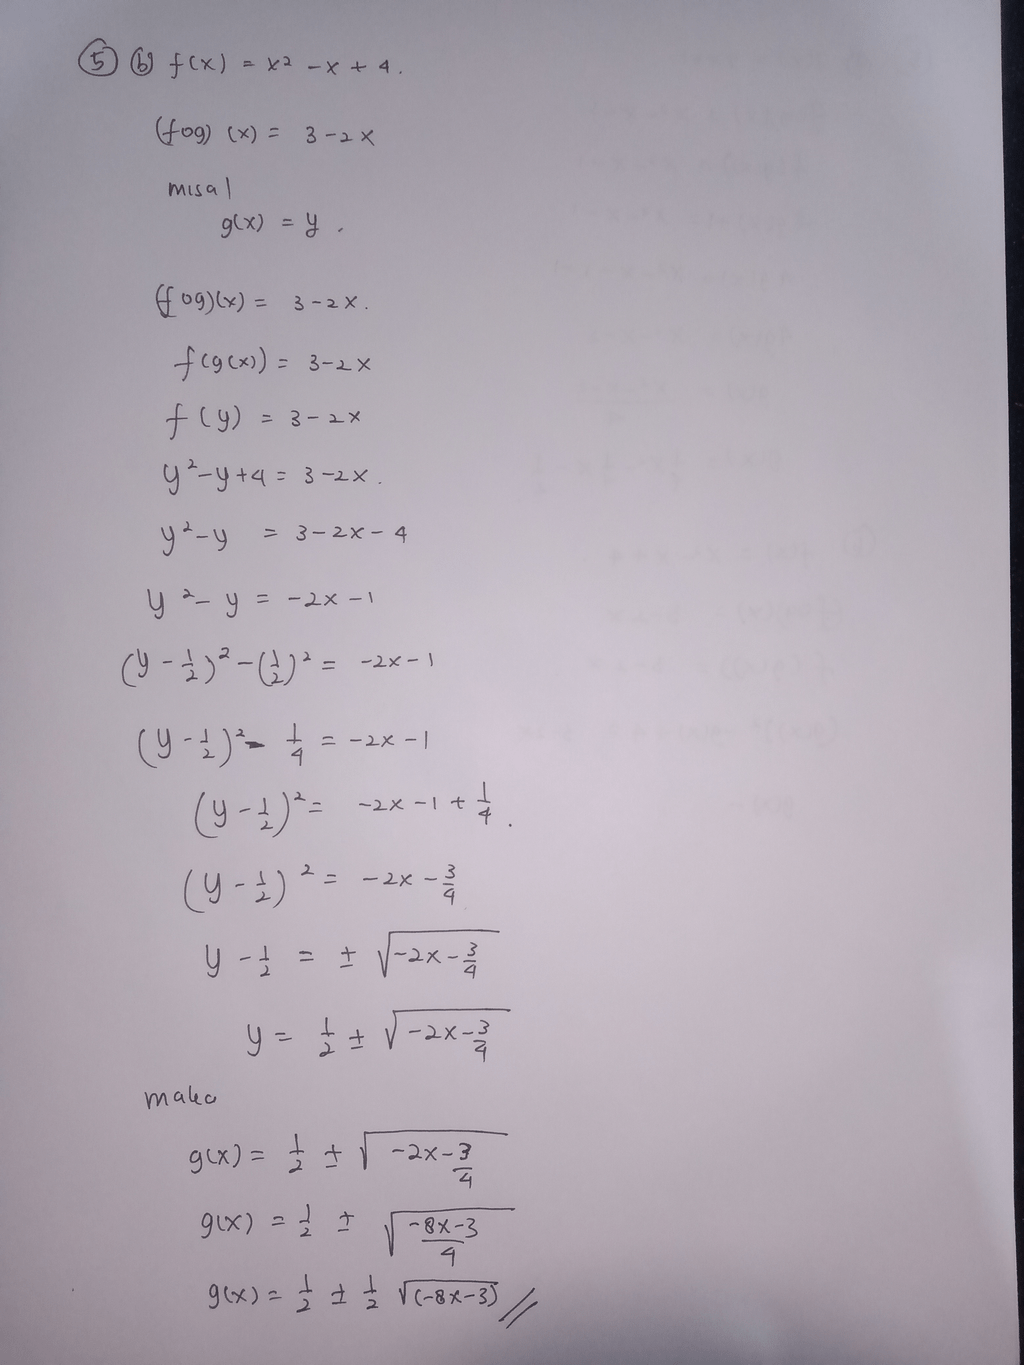 ⑤ ⓑ f(x) = x² - x + 4.
(fog) (x) = 3 - 2x
misal
g(x) = y.
(fog)(x) = 3 - 2x.
f(g(x)) = 3 - 2x
f(y) = 3 - 2x
y² - y + 4 = 3 - 2x.
y² - y = 3 - 2x - 4
y² - y = -2x - 1
(y - 1/2)² - (1/2)² = -2x - 1
(y - 1/2)² - 1/4 = -2x - 1
(y - 1/2)² = -2x - 1 + 1/4.
(y - 1/2)² = -2x - 3/4
y - 1/2 = ± √(-2x - 3/4)
y = 1/2 ± √(-2x - 3/4)
maka
g(x) = 1/2 ± √(-2x - 3/4)
g(x) = 1/2 ± √((-8x - 3)/4)
g(x) = 1/2 ± 1/2 √(-8x - 3) //